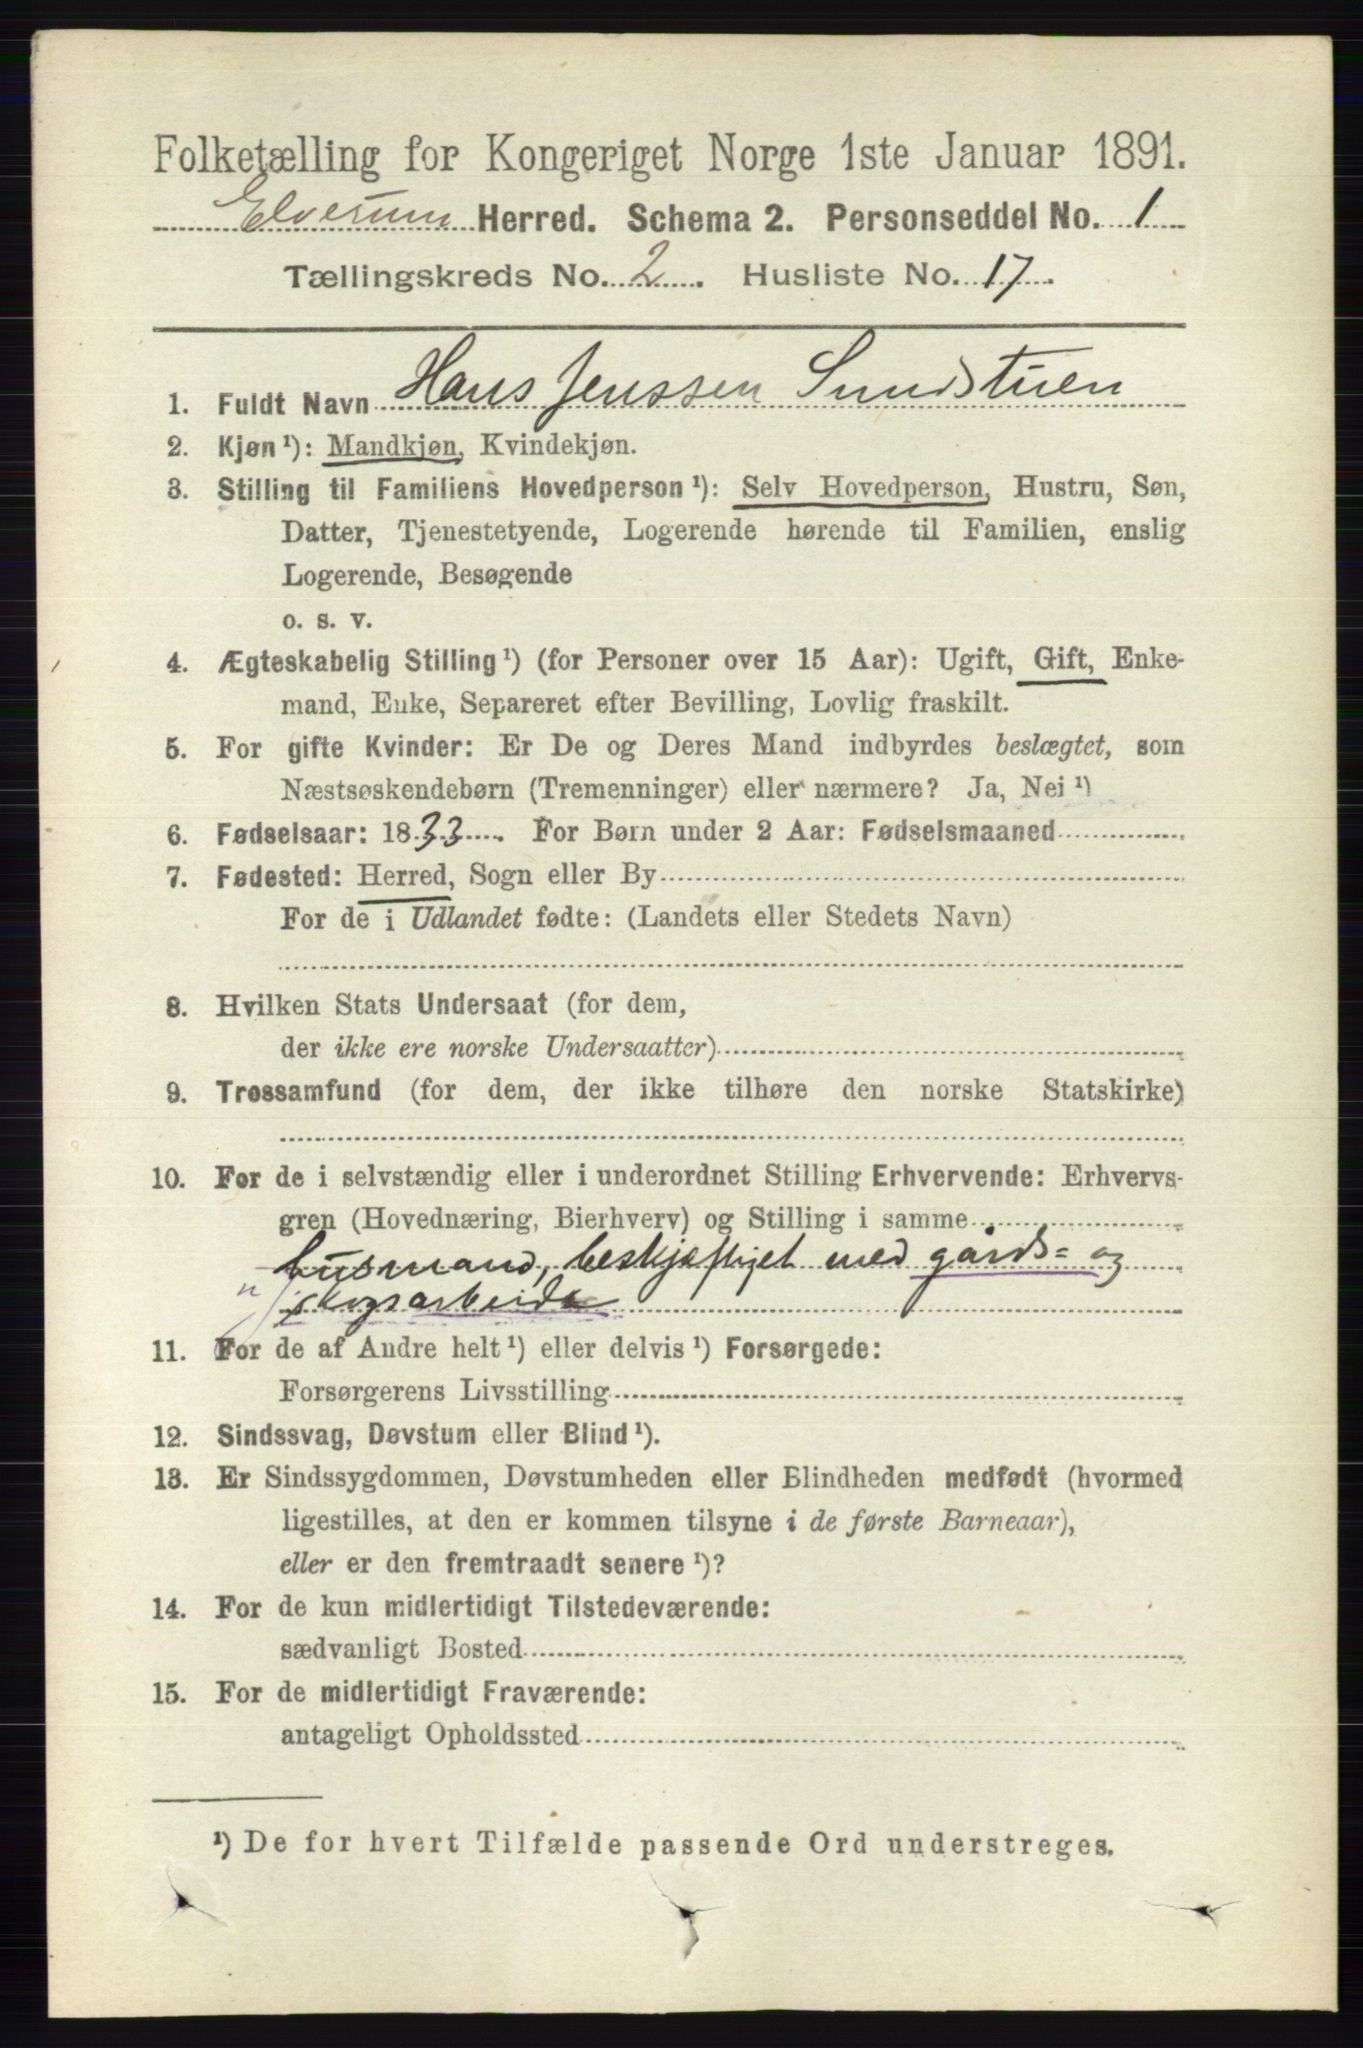 Folketælling for Kongeriget Norge 1ste Januar 1891.
Elverum Herred. Schema 2. Personseddel No. 1
Tællingskreds No. 2. Husliste No. 17.
1. Fuldt Navn Hans Jenssen Sundstuen
2. Kjøn¹): Mandkjøn, Kvindekjøn.
3. Stilling til Familiens Hovedperson¹): Selv Hovedperson, Hustru, Søn,
Datter, Tjenestetyende, Logerende hørende til Familien, enslig
Logerende, Besøgende
o. s. v.
4. Ægteskabelig Stilling¹) (for Personer over 15 Aar): Ugift, Gift, Enke-
mand, Enke, Separeret efter Bevilling, Lovlig fraskilt.
5. For gifte Kvinder: Er De og Deres Mand indbyrdes beslægtet, som
Næstsøskendebørn (Tremenninger) eller nærmere? Ja, Nei¹)
6. Fødselsaar: 1833. For Børn under 2 Aar: Fødselsmaaned
7. Fødested: Herred, Sogn eller By
For de i Udlandet fødte: (Landets eller Stedets Navn)
8. Hvilken Stats Undersaat (for dem,
der ikke ere norske Undersaatter)
9. Trossamfund (for dem, der ikke tilhøre den norske Statskirke)
10. For de i selvstændig eller i underordnet Stilling Erhvervende: Erhvervs-
gren (Hovednæring, Bierhverv) og Stilling i samme
husmand, beskjæftiget med gårds= og
skogsarbeide
11. For de af Andre helt¹) eller delvis¹) Forsørgede:
Forsørgerens Livsstilling
12. Sindssvag, Døvstum eller Blind¹).
13. Er Sindssygdommen, Døvstumheden eller Blindheden medfødt (hvormed
ligestilles, at den er kommen tilsyne i de første Barneaar),
eller er den fremtraadt senere¹)?
14. For de kun midlertidigt Tilstedeværende:
sædvanligt Bosted
15. For de midlertidigt Fraværende:
antageligt Opholdssted
¹) De for hvert Tilfælde passende Ord understreges.